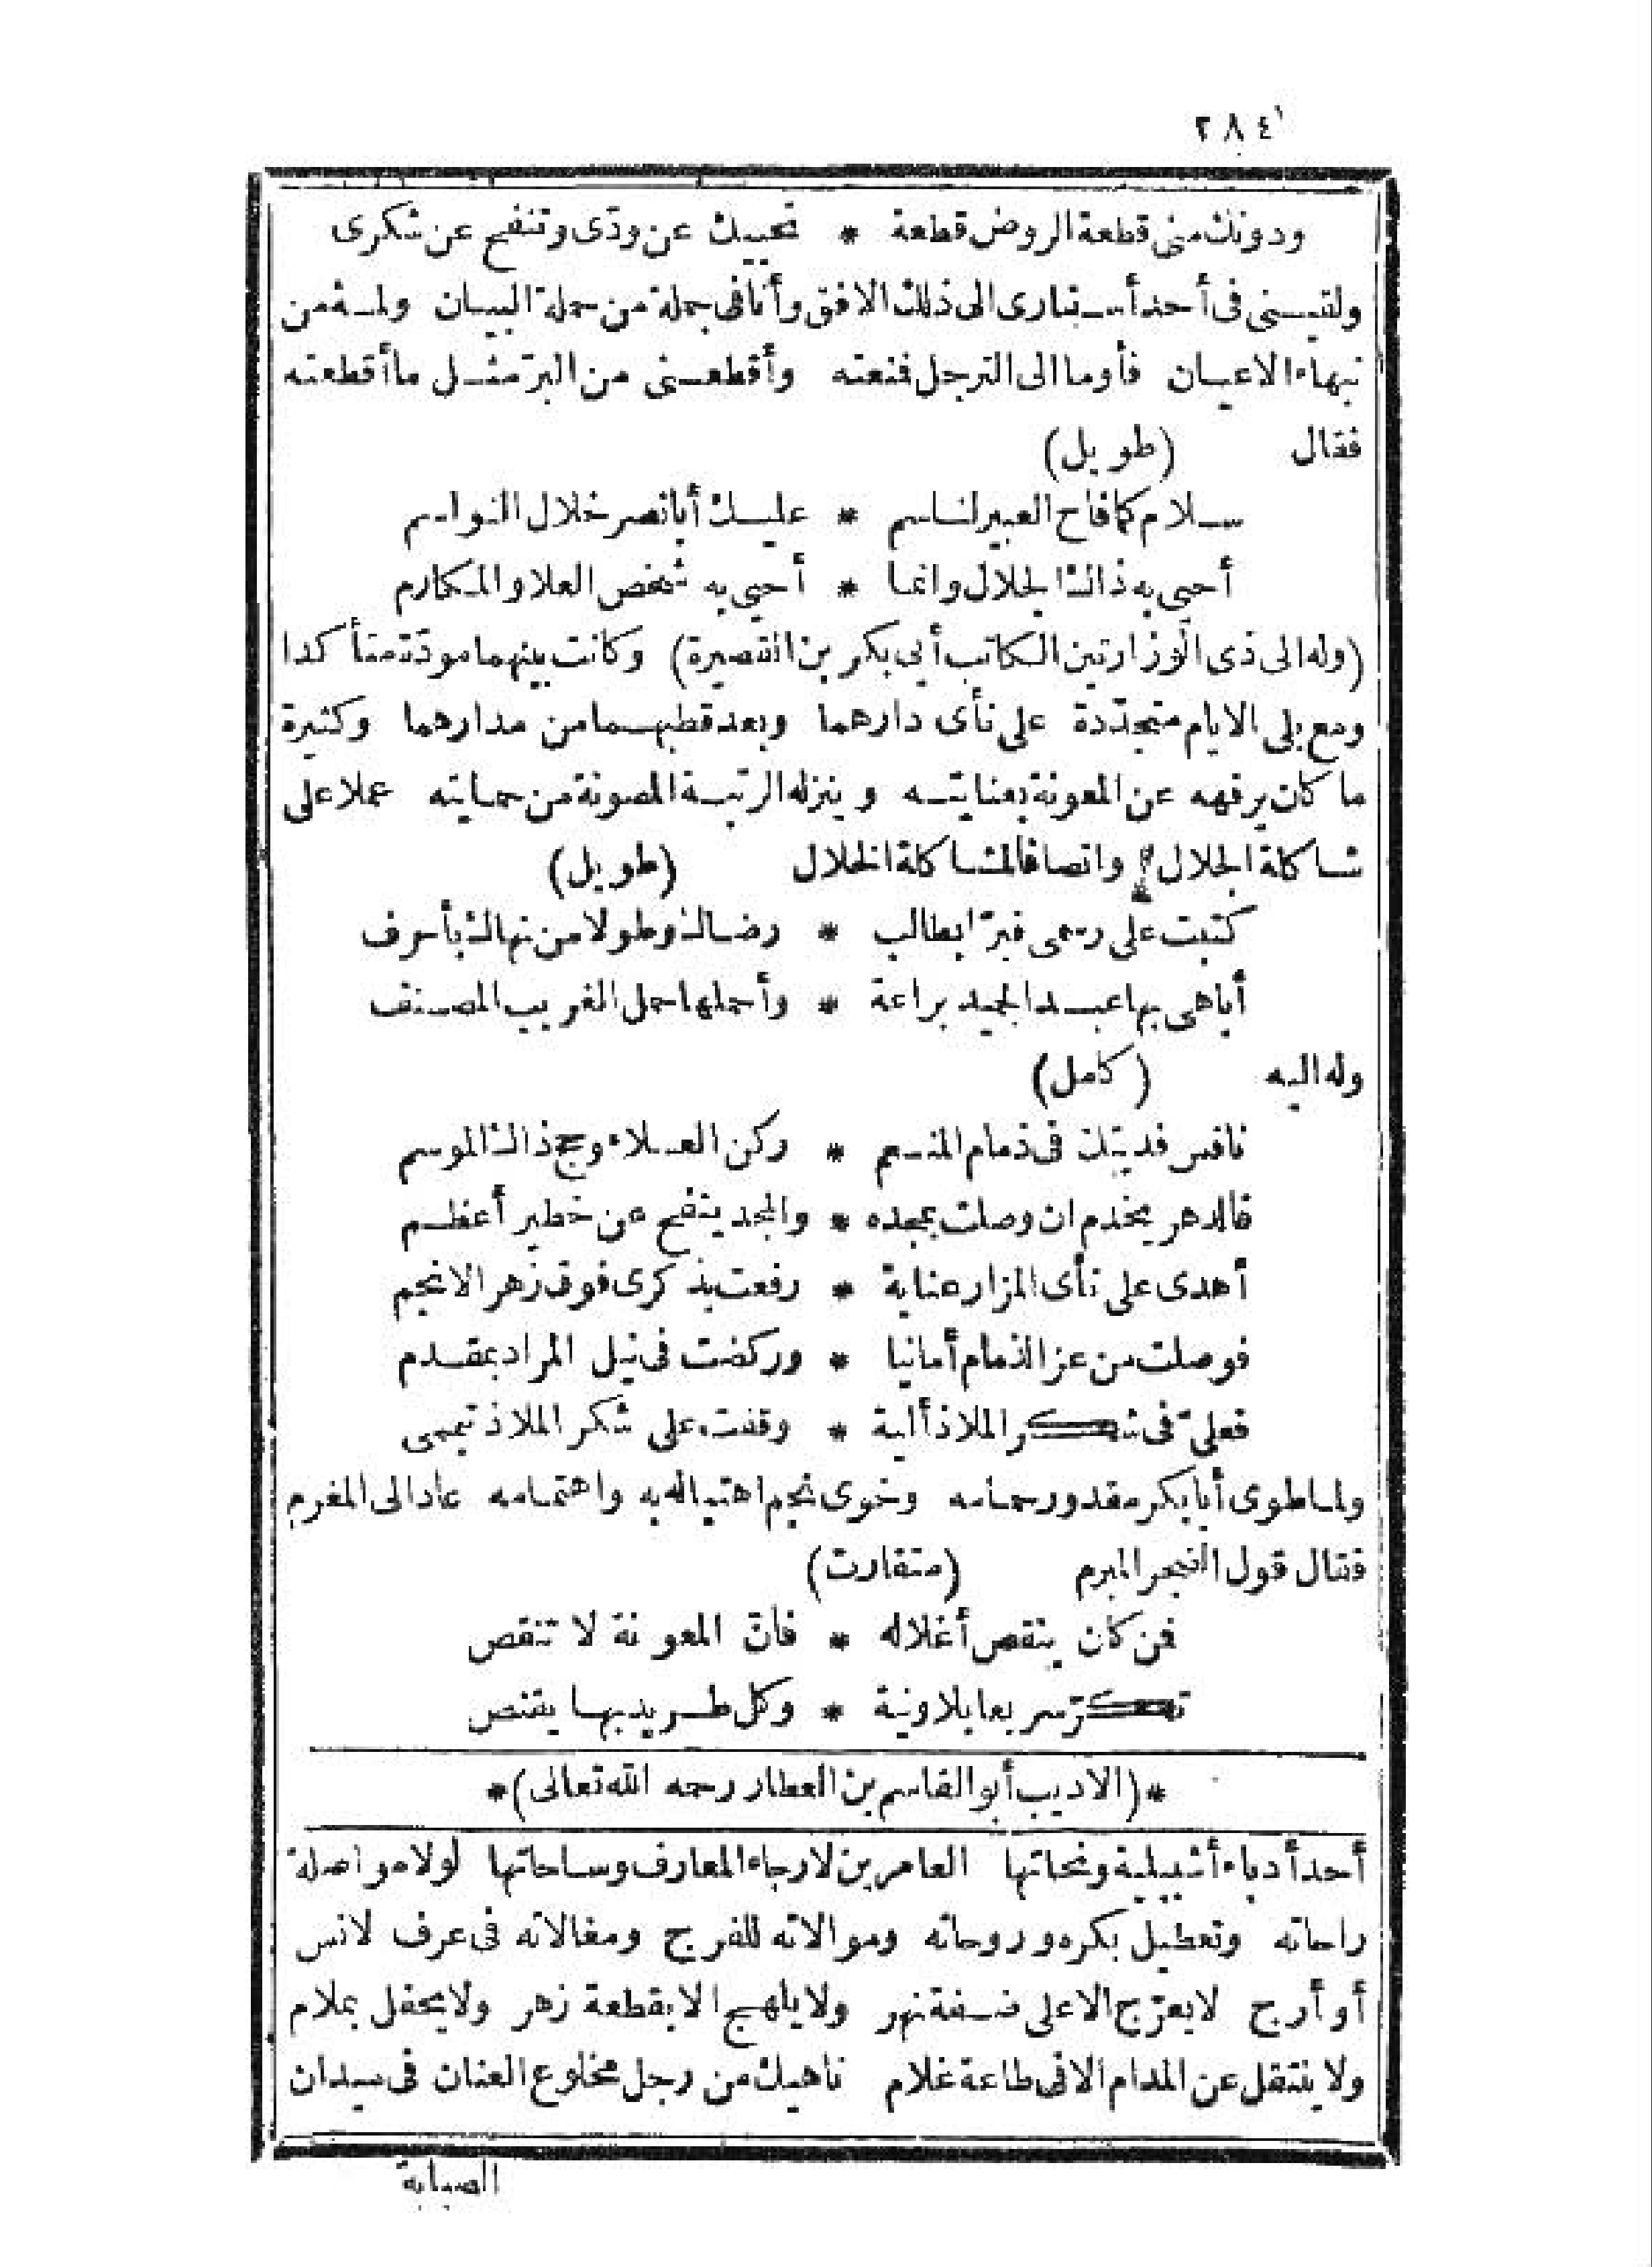 ٢٨٤
ودونك منى قطعة الروض قطعة * تحييك عن ودّى وتنفح عن شكرى
ولقيــنى فى أحد أســفارى الى ذلك الافق وأنا فى جملة من حملة البيــان ولمــة من
نبهاء الاعيــان فأوما الى الترجل فنعته وأقطعــنى من البرّ مثــل ما أقطعته
فقال (طويل)
ســلام كما فاح العبير لناسم * عليــك أبا نصر خلال النواسم
أحيى به ذاك الجلال وانما * أحيى به شخص العلا والمكارم
(وله الى ذى الوزارتين الكاتب أبى بكر بن القصيرة) وكانت بينهما مودّة متأكدا
ومع بلى الايام متجدّدة على نأى دارهما وبعد قطبهــما من مدارهما وكثيرة
ما كان يرفهه عن المعونة بعنايتــه وينزله الرتبــة المصونة من حمايته عملا على
شــاكلة الجلال واتصافا لمشــاكلة الخلال (طويل)
كتبت على رسمى فبرّا بطالب * رضاك وطولا من نهاك بأحرف
أباهى بها عبــد الحميد براعة * وأحملها حمل الغريب المصــنف
وله اليه (كامل)
نافس فديتك فى ذمام المنــعم * ركن العــلاء وحج ذاك الموسم
فالدهر يخدم ان وصلت بمجده * والمجد ينفح عن خطير أعظــم
أهدى على نأى المزار عناية * رفعت بذكرى فوق زهر الانجم
فوصلت من عز الذمام أمانيا * وركضت فى نيل المراد بمقــدم
فعلىّ فى شكــر الملاذ ألية * وقفت على شكر الملاذ تيممى
ولما طوى أبا بكر مقدور حمامه وخوى نجم اهتباله به واهتمامه عاد الى المغرم
فقال قول الضجر المبرم (متقارت)
فمن كان ينقص أغلاله * فانّ المعونة لا تنقص
تكــرّ سريعا بلا ونية * وكل طــريد بهــا يقنص
*(الاديب أبو القاسم بن العطار رحمه الله تعالى)*
أحد أدباء أشبيلية ونحاتها العامرين لارجاء المعارف وساحاتها لولا مواصلة
راحاته وتعطيل بكره وروحاته وموالاته للفرج ومغالاته فى عرف لانس
أو أرج لا يعرّج الا على ضــفة نهر ولا يلهج الا بقطعة زهر ولا يحفل بملام
ولا ينتقل عن المدام الا فى طاعة غلام ناهيك من رجل مخلوع العنان فى ميدان
الصبابة